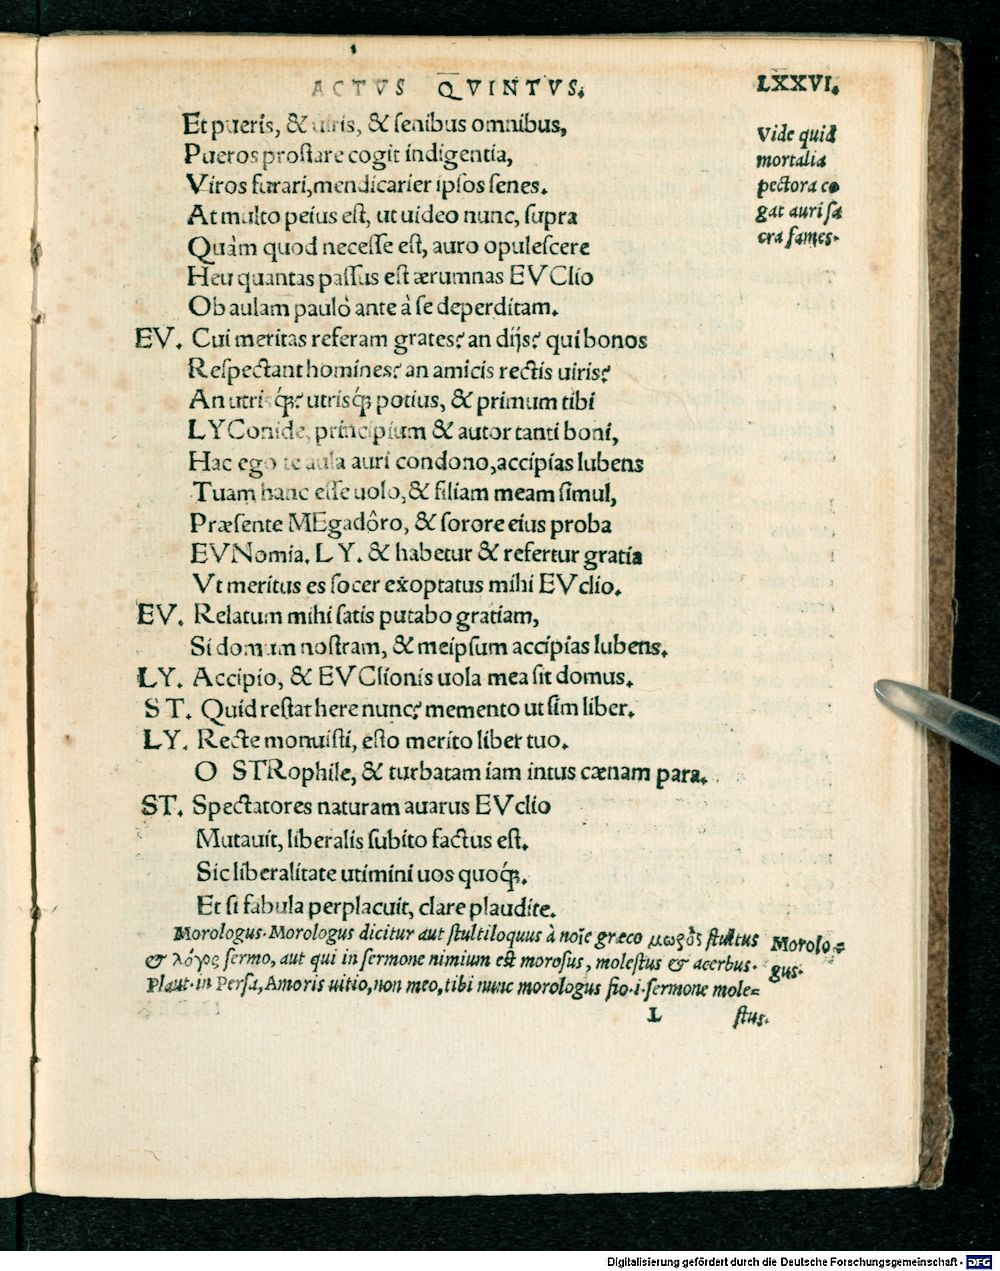 ACTVS QVINTVS.
LXXVI.
Et pueris, & uiris, & senibus omnibus,
Pueros prostare cogit indigentia,
Viros furari, mendicarier ipsos senes.
At multo peius est, ut uideo nunc, supra
Quàm quod necesse est, auro opulescere
Heu quantas passus est ærumnas EVClio
Ob aulam paulò ante à se deperditam.
Vide quid
mortalia
pectora co
gat auri sa
cra fames.
EV. Cui meritas referam grates? an dijs? qui bonos
Respectant homines? an amicis rectis uiris?
An utrisq́;? utrisq́; potius, & primum tibi
LYConide, principium & autor tanti boni,
Hac ego te aula auri condono, accipias lubens
Tuam hanc esse uolo, & filiam meam simul,
Præsente MEgadôro, & sorore eius proba
EVNomia. LY. & habetur & refertur gratia
Vt meritus es socer exoptatus mihi EVclio.
EV. Relatum mihi satis putabo gratiam,
Si domum nostram, & meipsum accipias lubens.
LY. Accipio, & EVClionis uola mea sit domus.
ST. Quid restat here nunc? memento ut sim liber.
LY. Recte monuisti, esto merito liber tuo.
O STRophile, & turbatam iam intus cænam para.
ST. Spectatores naturam auarus EVclio
Mutauit, liberalis subito factus est.
Sic liberalitate utimini uos quoq́;.
Et si fabula perplacuit, clare plaudite.
Morologus. Morologus dicitur aut stultiloquus à noīe græco μωρὸς stultus
& λόγος sermo, aut qui in sermone nimium est morosus, molestus & acerbus.
Plaut. in Persa, Amoris uitio, non meo, tibi nunc morologus fio .i. sermone mole=
Morolo=
gus.
L
stus.
Digitalisierung gefördert durch die Deutsche Forschungsgemeinschaft - DFG